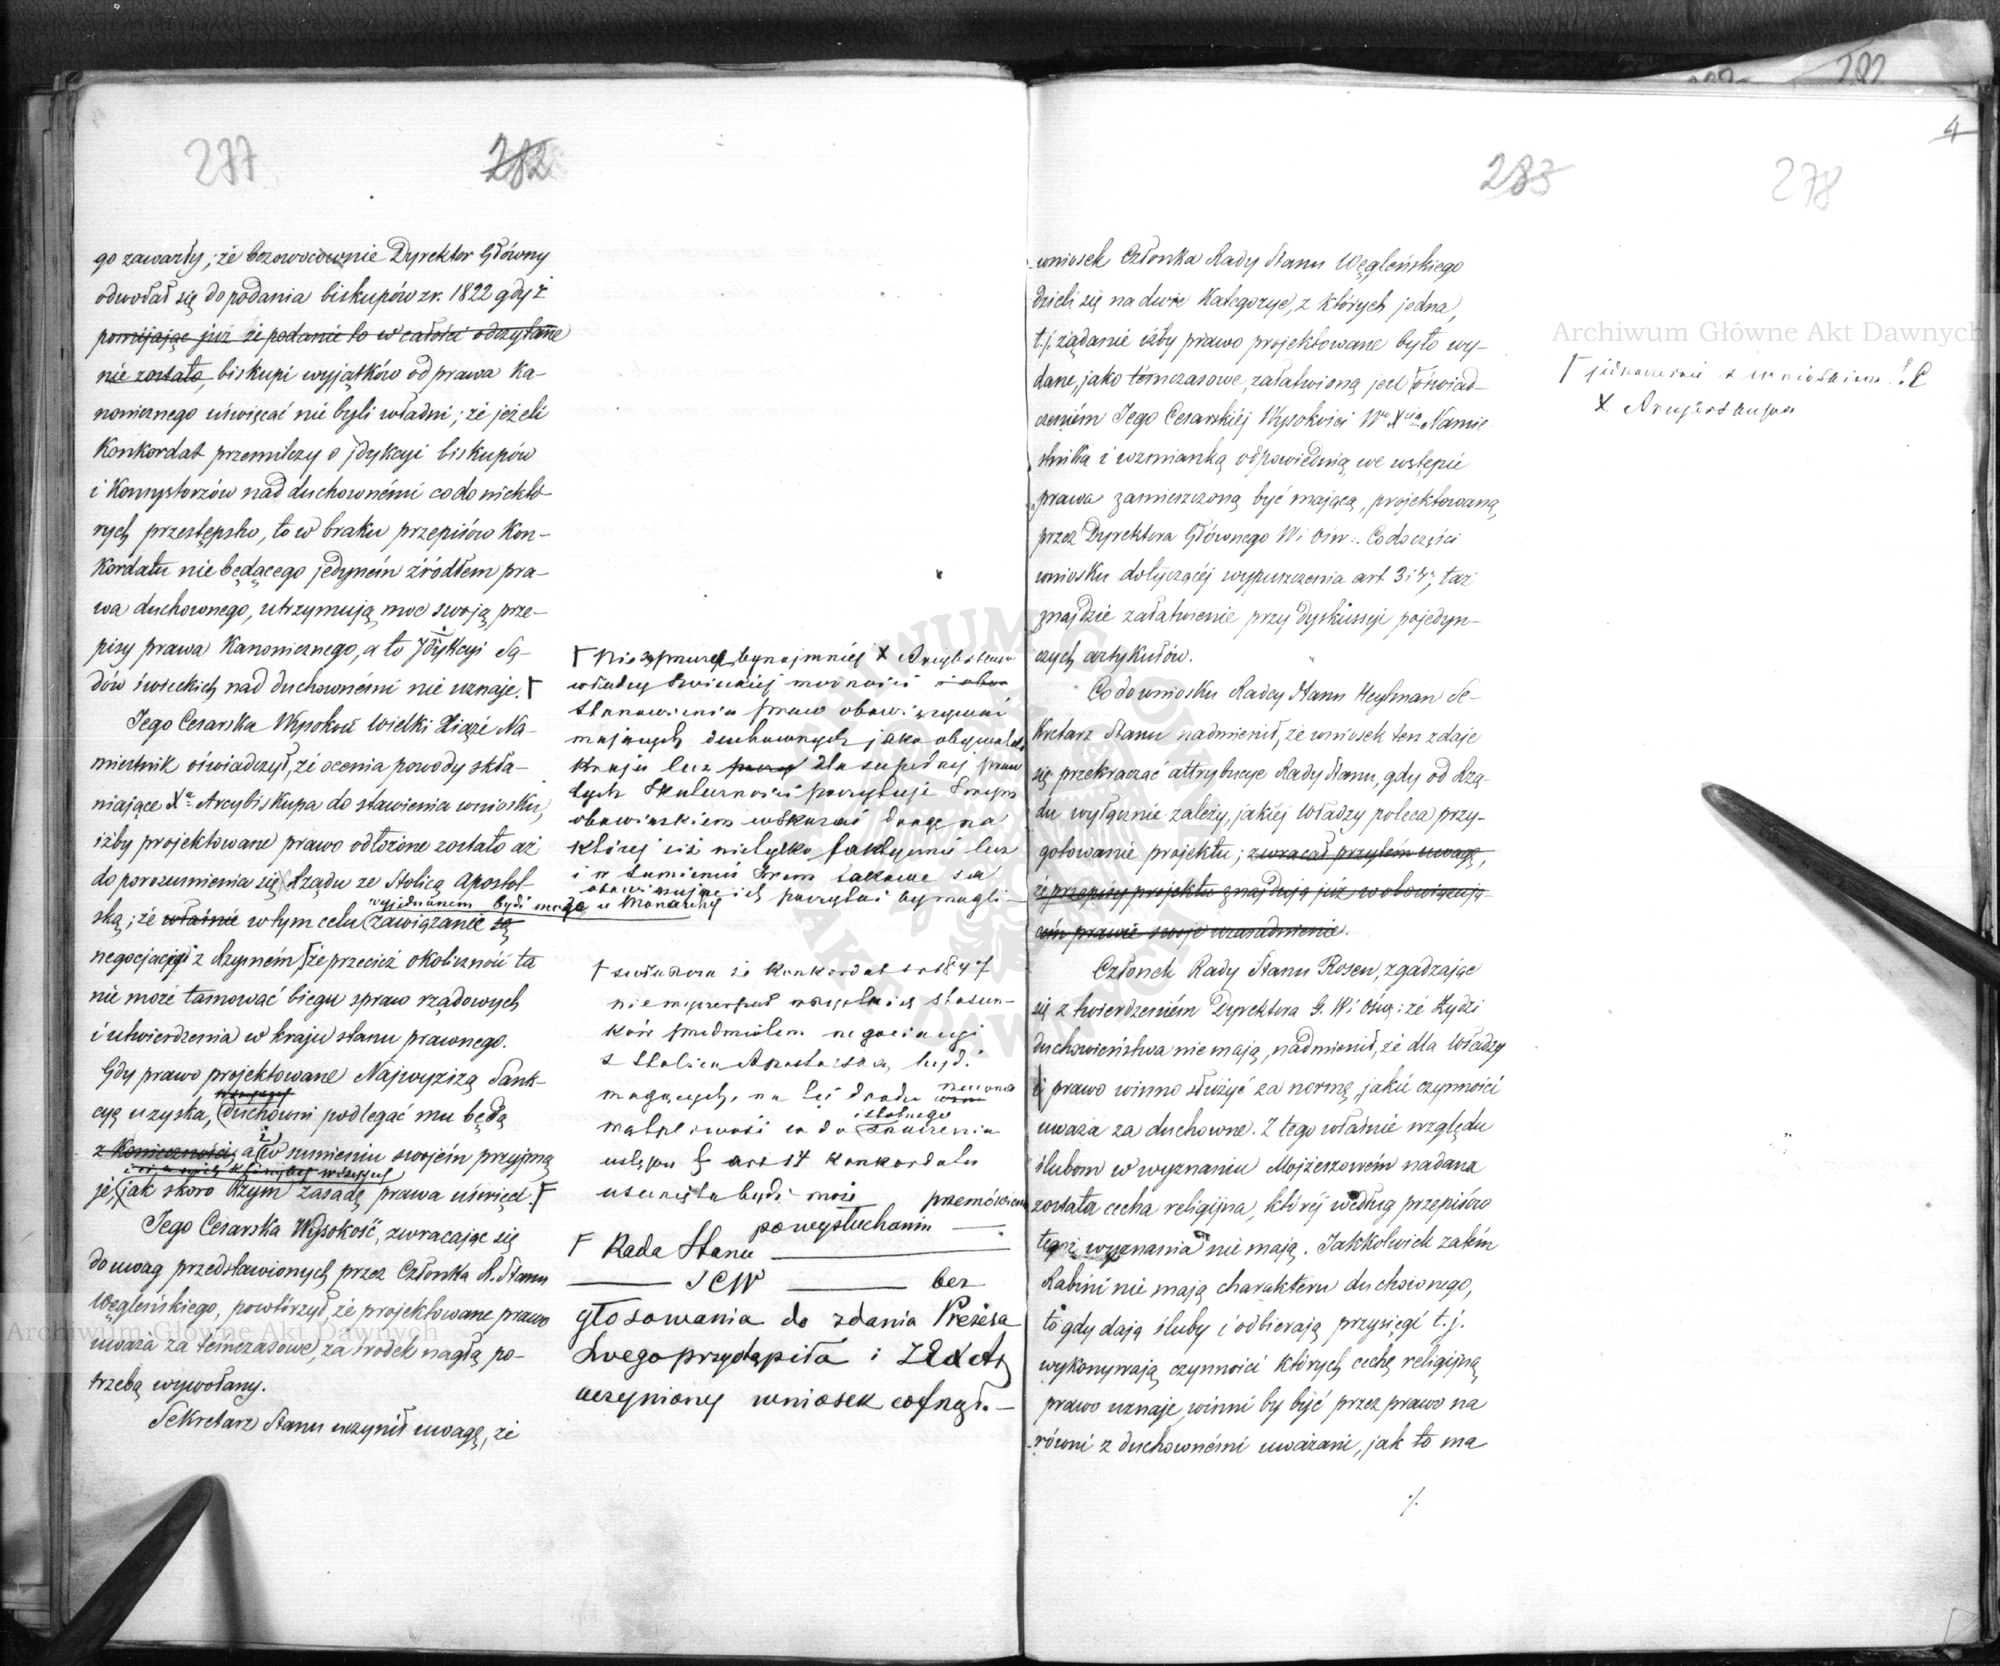 277
282
go zawarły; że bezowocownie Dyrektor Główny
odwołał się do podania biskupów z r. 1822 gdyż
pomijając już że podanie to w całości odczytane
nie zostało, biskupi wyjątków od prawa Ka-
nonicznego uświęcać nie byli władni; że jeżeli
Konkordat przemilczy o jdykcyi biskupów
i Konsystorzów nad duchownémi co do niektó-
rych przestępstw, to w braku przepisów Kon-
kordatu nie będącego jedyném źródłem pra-
wa duchownego, utrzymują moc swoją prze-
pisy prawa Kanonicznego, a to Jdykcyi Są-
dów świeckich nad duchownémi nie uznaje.
Jego Cesarska Wysokość Wielki Xiążę Na-
miestnik oświadczył, że ocenia powody skła-
niające Xa Arcybiskupa do stawienia wniosku,
iżby projektowane prawo odłożone zostało aż
do porozumienia się Rządu ze Stolicą Apostol-
wyjednanem być może u Monarchy
ską; że właśnie w tym celu zawiązanie są
negocjacyi z Rzymém że przecież okoliczność ta
nie może tamować biegu spraw rządowych
i utwierdzenia w kraju stanu prawnego.
Gdy prawo projektowane Najwyższą Sank-
cyą uzyska, duchowni podlegać mu będą
z Konieczności, a w sumieniu swojém przyjmą
je, jak skoro Rzym zasadę prawa uświęci.
Jego Cesarska Wysokość, zwracając się
do uwag przedstawionych przez Członka R. Stanu
Węgleńskiego, powtórzył, że projektowane prawo
uważa za témczasowe, za środek nagłą po-
trzebą wywołany.
Sekretarz Stanu uczynił uwagę, że
Nie zaprzeczał bynajmniej X Arcybiskup
władzy świeckiej możności
stanowienia praw obowiązywać
mających duchownych jako obywateli
kraju lecz dla zupełnej praw
tych skuteczności poczytuje Swym
obowiązkiem wskazać drogę na
której iżż nietylko faktycznie lecz
i w sumieniu Swem takowe za
obowiązujące ich poczytać by mogli
że Konkordat z r. 1847
nie wyczerpał wszystkich stosun-
ków przedmiotem negocjacyi
z Stolicą Apostolską być
mogących, na tej drodze
wątpliwość co do istotnego znaczenia
ustępu § art 14 Konkordatu
usunięta być może
Rada Stanu po wysłuchaniu przemówienia
JCW bez
głosowania do zdania Prezesa
Swego przystąpiła i
uczyniony wniosek cofnął.
4
283
278
wniosek Członka Rady Stanu Węgleńskiego
dzieli się na dwie Kategorye, z których jedna,
t.j. żądanie iżby prawo projektowane było wy-
dane, jako témczasowe, załatwioną jest oświad-
czeniém Jego Cesarskiéj Wysokości Wo Xcia Namie-
stnika i wzmianką odpowiednią we wstępie
prawa zamieszczoną być mającą, projektowaną
przez Dyrektora Głównego W i Ośw:. Co do części
wniosku dotyczącéj wypuszczenia art 3 i 4, taż
znajdzie załatwienie przy dyskussyi pojedyn-
czych artykułów.
Co do wniosku Radcy Stanu Heylman Se-
kretarz Stanu nadmienił, że wniosek ten zdaje
się przekraczać attrybucye Rady Stanu, gdy od Rzą-
du wyłącznie zależy, jakiéj władzy poleca przy-
gotowanie projektu; zwracał przytém uwagę,
że przepisy projektu znajdują już w obowiązują-
cém prawie swoje uzasadnienie.
Członek Rady Stanu Rosen, zgadzając
się z twierdzeniém Dyrektora G. W i Ośw: że Żydzi
duchowieństwa nie mają, nadmienił, że dla Władzy
prawo winno służyć za normę, jakie czynności
uważa za duchowne. Z tego właśnie względu
ślubom w wyznaniu Mojżeszowém nadana
została cecha religijna, któréj według przepisów
tegoż wyznania nie mają. Jakkolwiek zatém
Rabini nie mają charakteru duchownego,
to gdy dają śluby i odbierają przysięgi t.j.
wykonywają czynności których cechę religijną
prawo uznaje, winni by być przez prawo na
równi z duchownémi uważani, jak to ma
./.
jednocześnie z wnioskiem
X Arcybiskupa
Archiwum Główne Akt Dawnych
Archiwum Główne Akt Dawnych